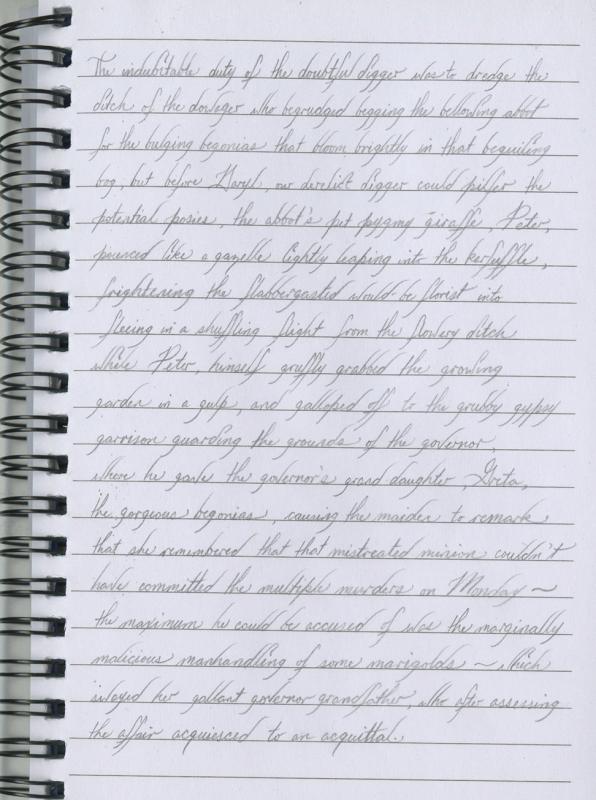 The indubitable duty of the doubtful digger was to dredge the
ditch of the doweger who begrudged begging the bellowing abbot
for the bulging begonias that bloom brightly in that beguiling
bog, but before Daryl, our derelict digger could pilfer the
potential posies, the abbot's pet pygmy giraffe, Peter,
pounced like a gazelle lightly leaping into the kerfuffle,
frightening the flabbergasted would-be florist into
fleeing in a shuffling flight from the flowery ditch
while Peter, himself gruffly grabbed the growing
garden in a gulp, and galloped off to the grubby gypsy
garrison guarding the grounds of the governor,
where he gave the governor's grand daughter, Greta,
the gorgeous begonias, causing the maiden to remark
that she remembered that that mistreated minion couldn't
have committed the multiple murders on Monday ~
the maximum he could be accused of was the marginally
malicious manhandling of some marigolds ~ which
swayed her gallant governor grandfather, who after assessing
the affair acquiesced to an acquittal.